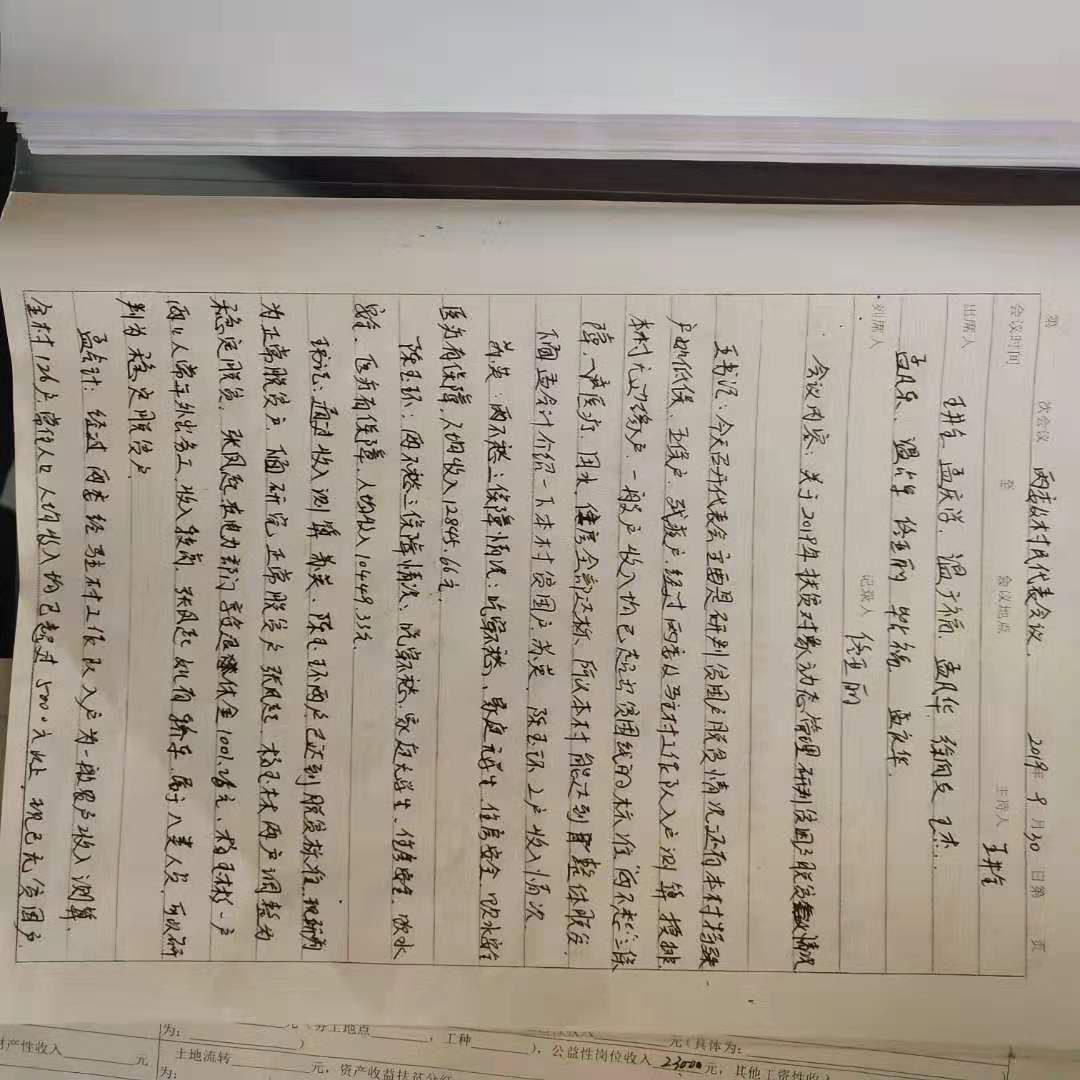 第 次会议 村民代表会议 2019年9月30日第 页
会议时间 至 会议地点 主持人
出席人 孟庆学、温广福 孟凡华
孟凡东、温 孟庆华
列席人 记录人
会议内容：关于2019年扶贫对象动态管理研判贫困户脱贫情况
王书记：今天召开代表会主要是研判贫困户脱贫情况还有本村特殊
户如低保、五保户、残疾户，经过两委及驻村工作队入户测算摸排
本村无边缘户，一般户收入均已超出贫困线的标准"两不愁"三保
障，户医疗、困水、住房全部达标，所以本村能达到整体脱贫
下面孟会计介绍一下本村贫困户苏英、陈玉环2户收入情况
苏英：两不愁三保障情况：吃穿不愁、家庭无学生、住房安全、饮水安全
医疗有保障，人均收入12845.66元。
陈玉环：两不愁三保障情况、吃穿不愁、家庭无学生、住房安全、饮水
安全、医疗有保障、人均收入10449.35元。
书记：通过收入测算 苏英、陈玉环两户已达到脱贫标准，
为正常脱贫户，研究正常脱贫户张凤起、两户调整为
稳定脱贫，张凤起在电力部门 一户
两口人常年外出务工，收入较高，张凤起 儿有轿车，属于八类人员，可以研
判为稳定脱贫户
孟会计：经过两委经驻村工作队入户为一般农户收入测算，
全村126户常住人口人均收入均已超过5000元以上，现已无贫困户
为： 元（务工地点 ，工种 ），公益性岗位收入 23000 元，其他工资性收
元（具体为：
财产性收入 元 土地流转 元，资产收益扶贫分红
为：